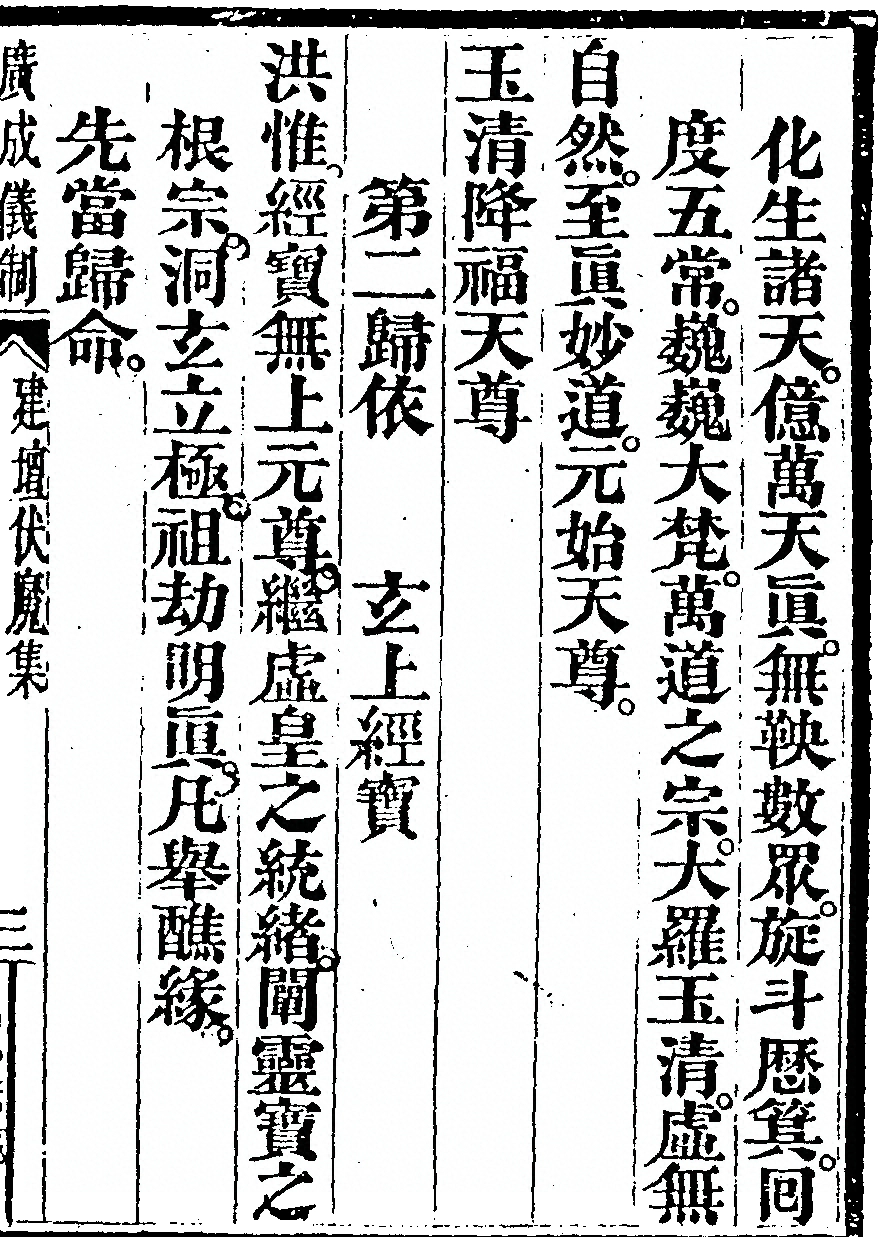 化生諸天。億萬天眞。無鞅數眾。旋斗歷箕。回
度五常。巍巍大梵。萬道之宗。大羅玉清。虛無
自然。至眞妙道。元始天尊。
玉清降福天尊
第二歸依 玄上經寶
洪惟、經寶無上元尊。繼虛皇之統緒。闡靈寶之
根宗。洞玄立極。祖劫明眞。凡舉醮緣。
先當歸命。
廣成儀制 建壇伏魔集 三